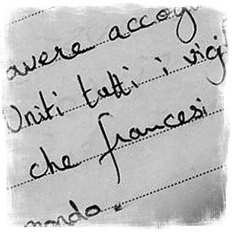 avere accog
Uniti tutti i vig
che francesi
mondo.